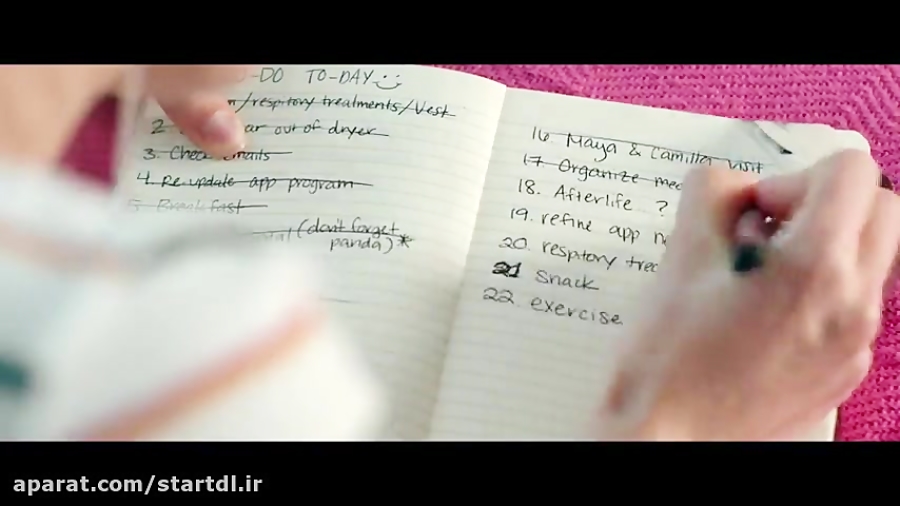 -DO TO-DAY
/respitory treatments/Vest
2 out of dryer
3. Check emails
4. Re update app program
5 Breakfast
(don't forget
panda)*
16. Maya & Camilla visit
17 Organize
18. Afterlife ?
19. refine app
20. respitory
21 Snack
22. exercise
aparat.com/startdl.ir